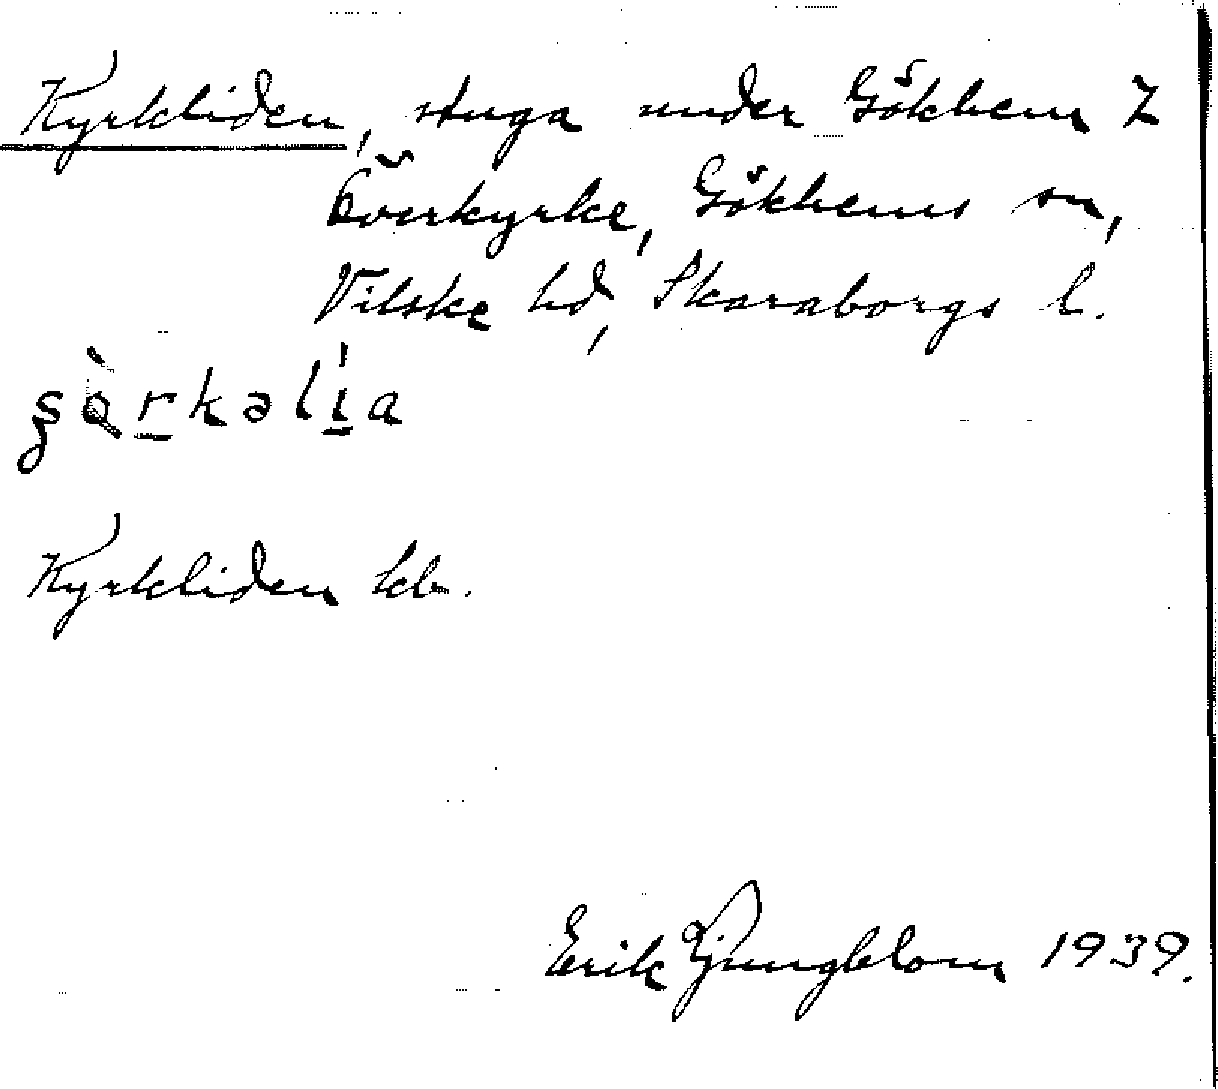 Kyrkliden, stuga under Gökhem Z
Överkyrke, Gökhems sn,
Vilske hd, Skaraborgs l.
Kyrkliden kb.
Erik Ljungblom 1939.